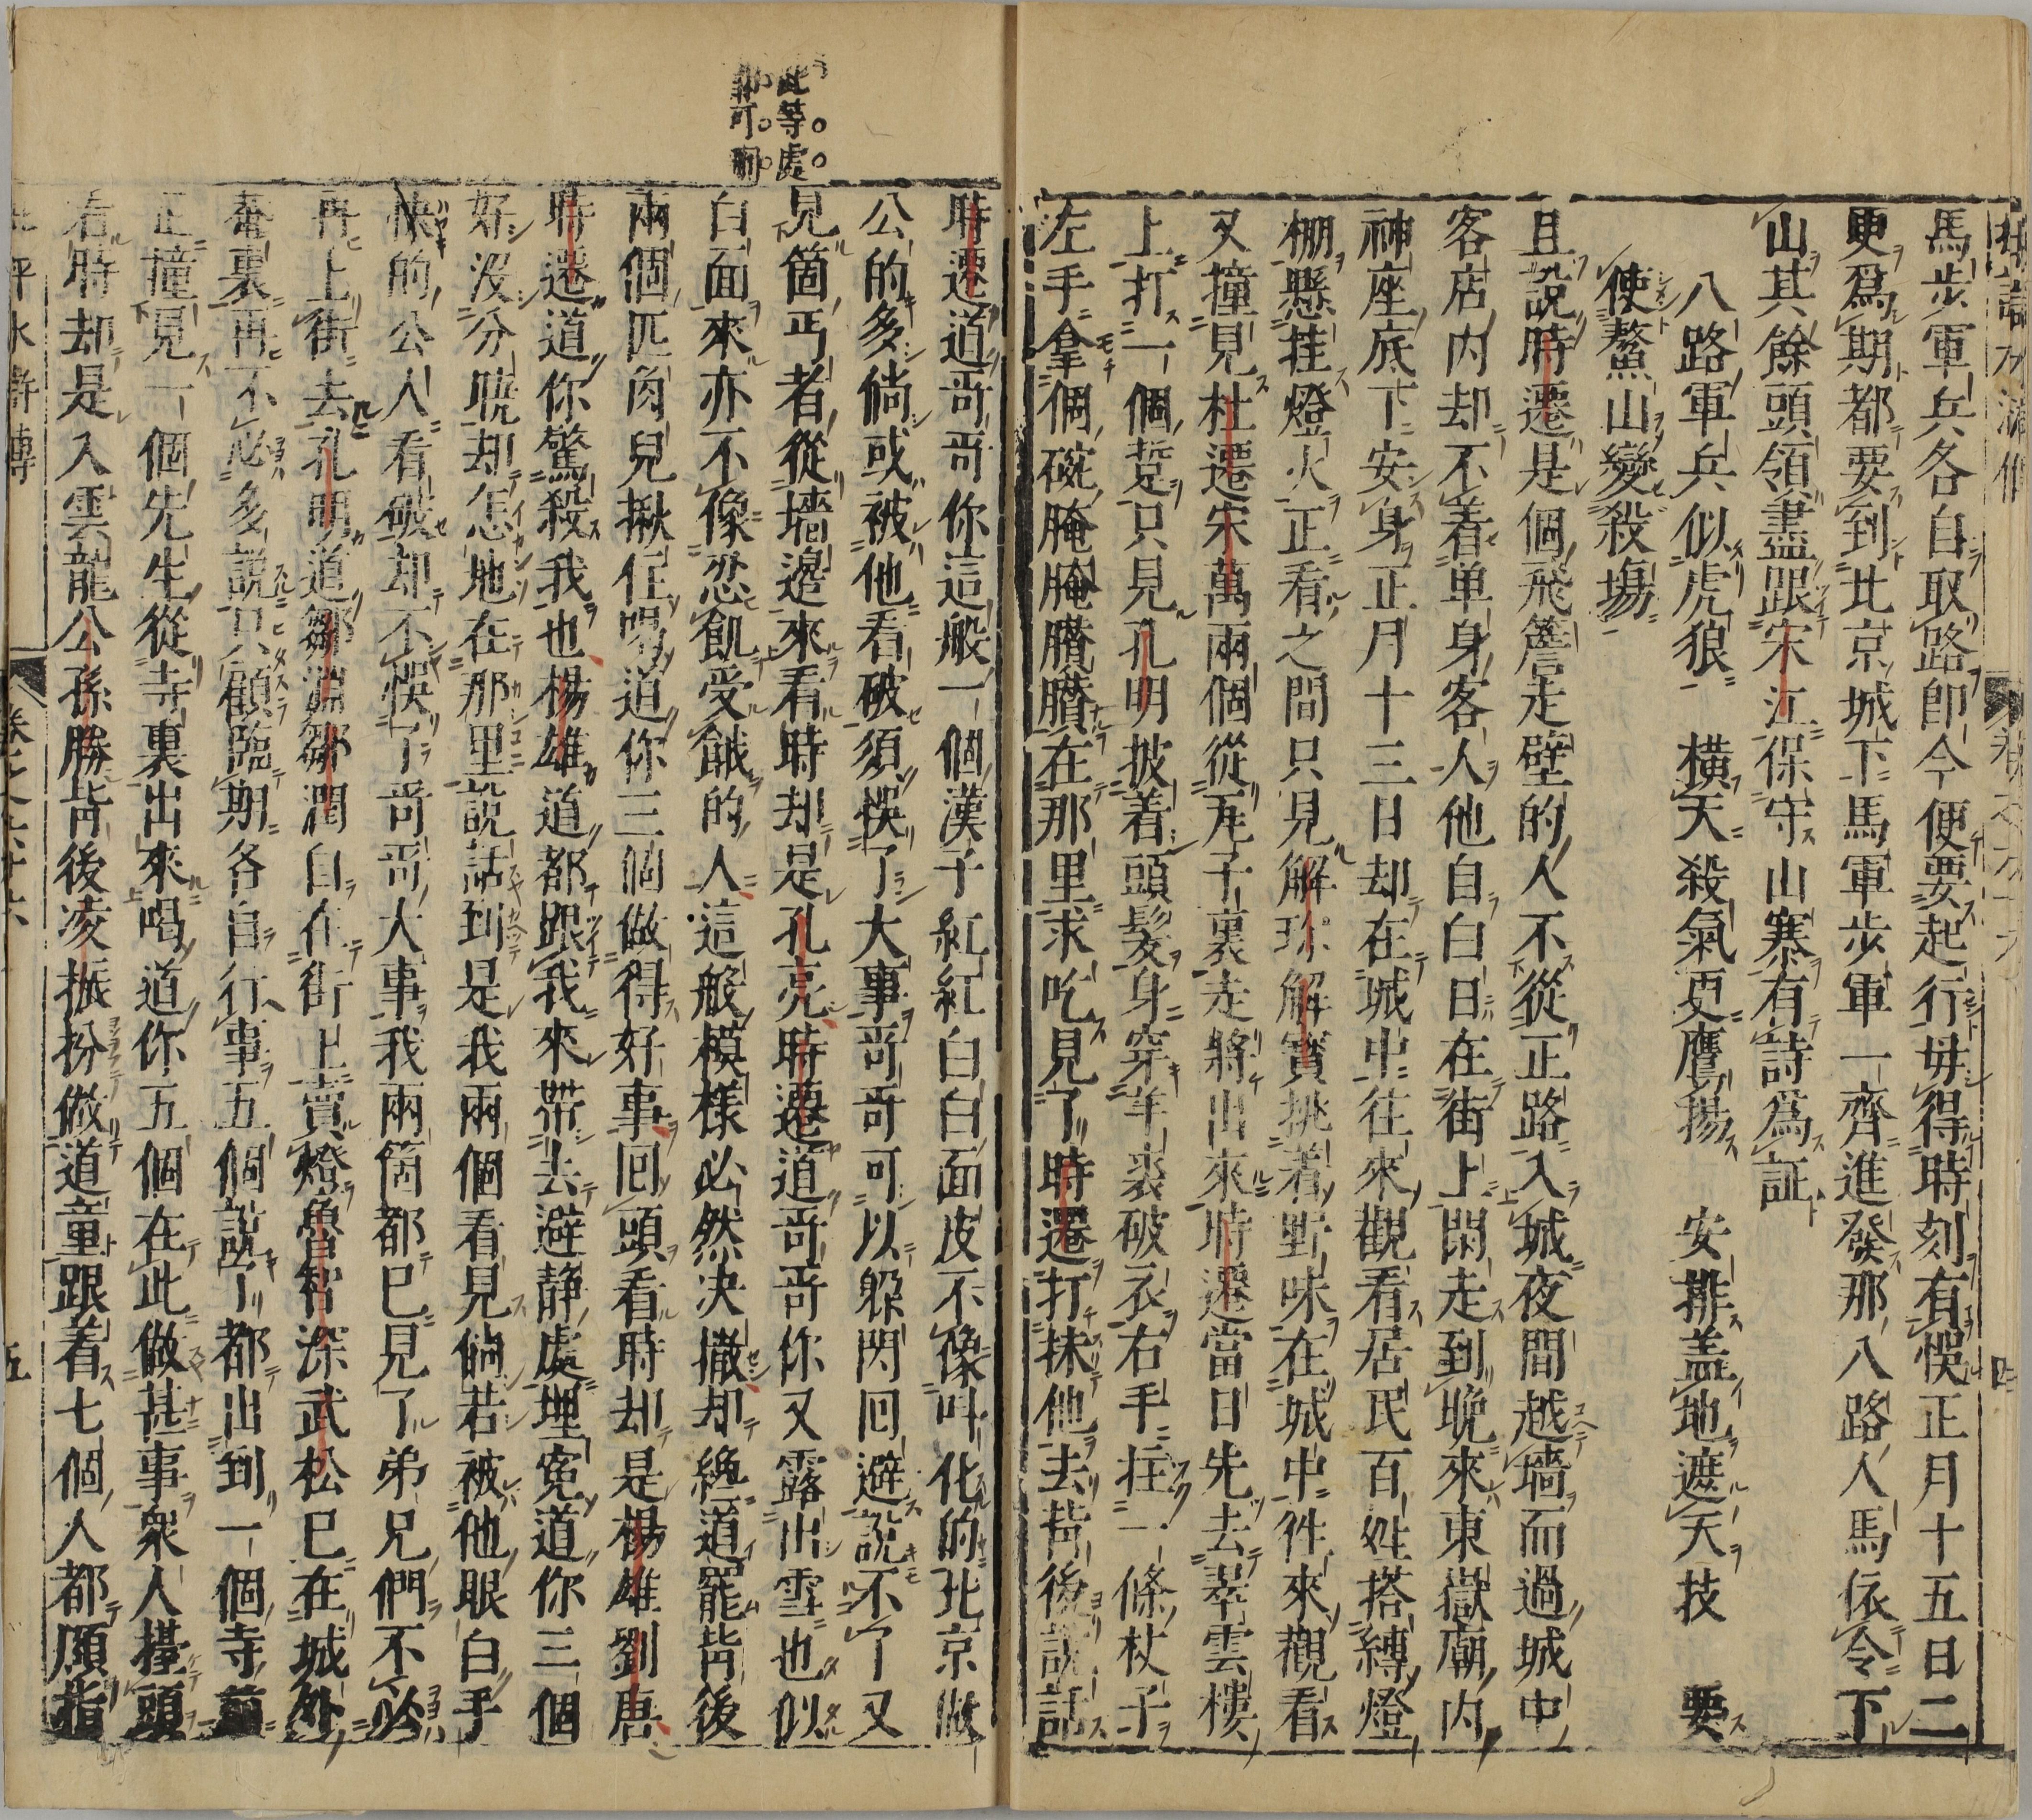 馬步軍兵各自取路即今便要起行毋得時刻有悞正月十五日二
更爲期都要到北京城下馬軍步軍一齊進發那八路人馬依令下
山其餘頭領盡跟宋江保守山寨有詩爲証
八路軍兵似虎狼　橫天殺氣更鷹揚　安排盖地遮天技　要
使鰲山變殺場
且說時遷是個飛簷走壁的人不從正路入城夜間越墻而過城中
客店内却不着単身客人他自白日在街上閑走到晚來東嶽廟内
神座底下安身正月十三日却在城中往來觀看居民百姓搭縛燈
棚懸挂燈火正看之間只見解珍解寶挑着野味在城中徃來觀看
又撞見杜遷宋萬兩個從瓦子裏走將出來時遷當日先去翠雲樓
上打一個踅只見孔明披着頭髮身穿羊裘破衣右手拄一條杖子
左手拿個碗腌腌臢臢在那里求吃見了時遷打抹他去背後說話
此等處
都可刪
時遷道哥哥你這般一個漢子紅紅白白面皮不像呌化的北京做
公的多倘或被他看破須悞了大事哥哥可以躲閃囘避說不了又
見箇丐者從墻邉來看時却是孔亮時遷道哥哥你又露出雪也似
白面來亦不像忍飢受餓的人這般模樣必然決撒却纔道罷背後
兩個匹肉兒揪住喝道你三個做得好事囘頭看時却是楊雄劉唐
時遷道你驚殺我也楊雄道都跟我來帶去避静處埋寃道你三個
好没分曉却怎地在那里說話到是我兩個看見倘若被他眼白手
快的公人看破却不悞了哥哥大事我兩箇都已見了弟兄們不必
再上街去孔明道鄒淵鄒潤自在街上賣燈魯智深武松已在城外
菴裏再不必多說只顧臨期各自行事五個說了都出到一個寺前
正撞見一個先生從寺裏出來喝道你五個在此做甚事衆人擡頭
看時却是入雲龍公孫勝背後凌振扮做道童跟着七個人都頋指